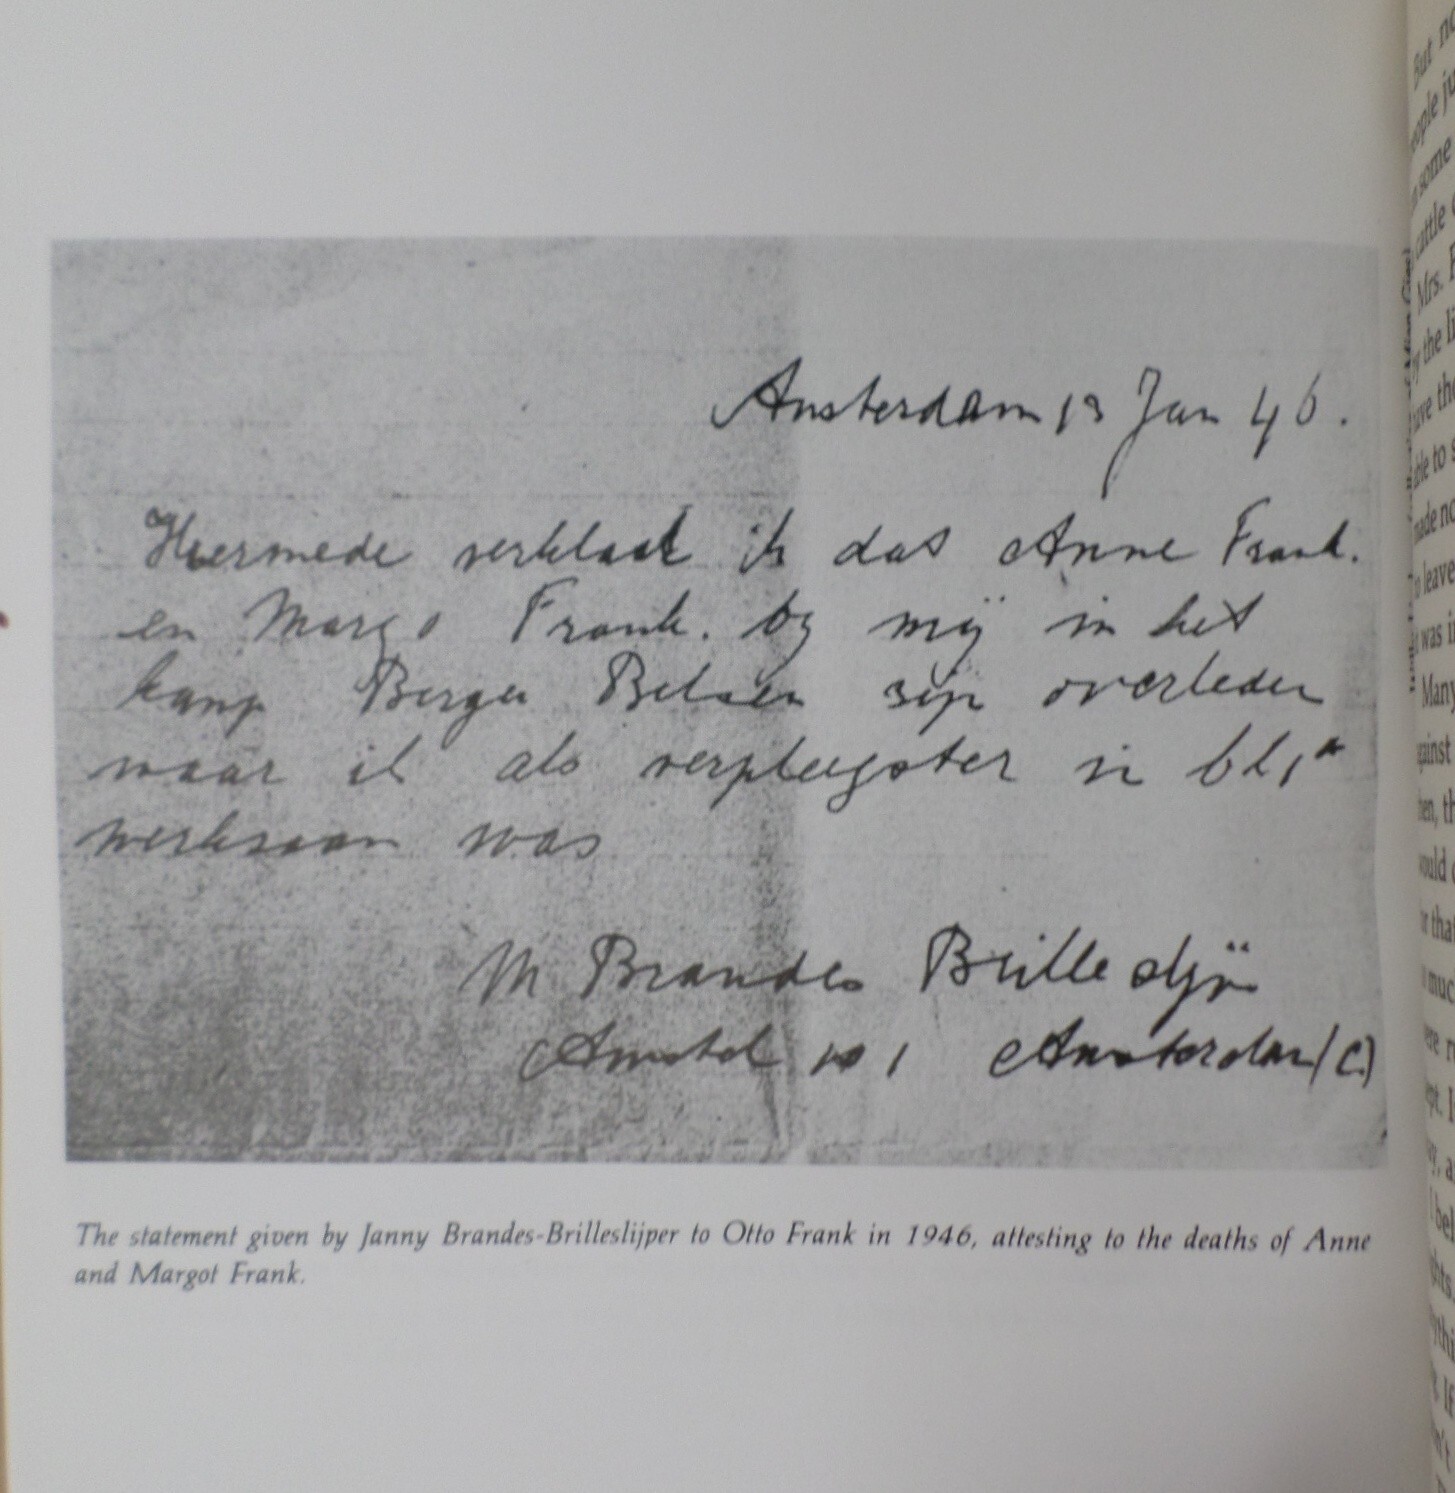 Amsterdam 13 Jan 46.
Hiermede verklaar ik dat Anne Frank.
en Margo Frank. by mij in het
kamp Bergen Belsen zijn overleden
waar ik als verpleegster in bl 1a
werkzaam was
M Brandes Brilleslijp
Amstel 101 Amsterdam (C)
The statement given by Janny Brandes-Brilleslijper to Otto Frank in 1946, attesting to the deaths of Anne
and Margot Frank.
But
people
some
cattle
Mrs.
the
able to
made
leave
was
Many
would
that